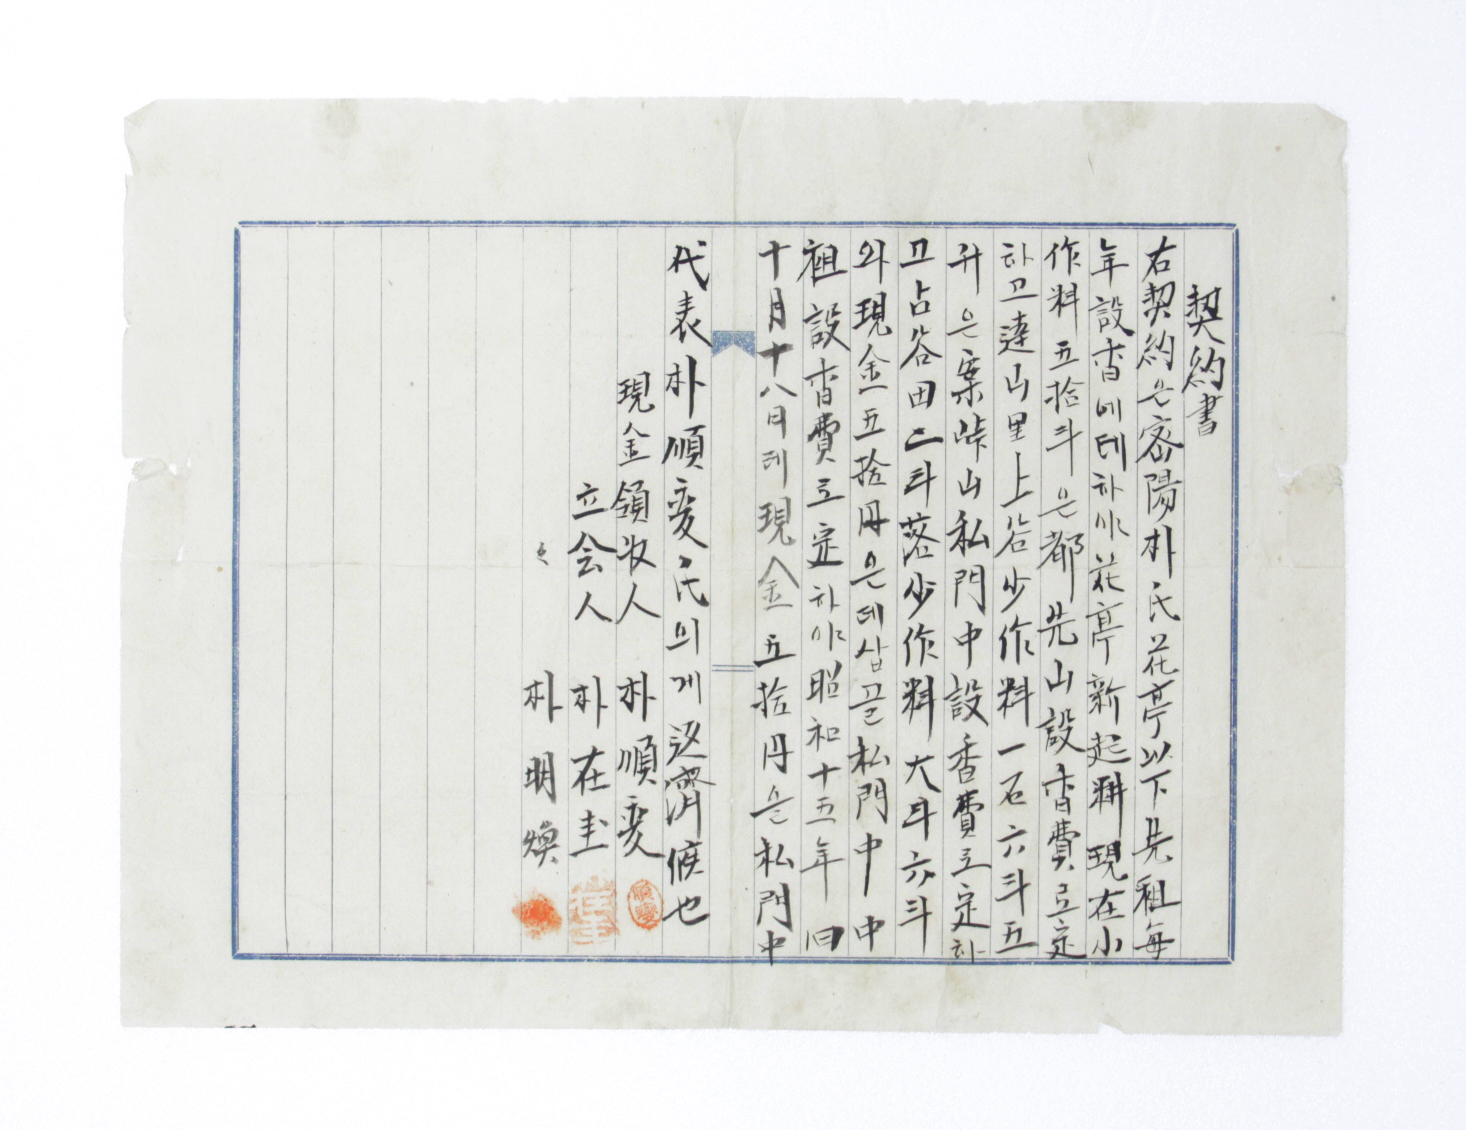 契約書
右契約은密陽朴氏花亭以下先祖每
年設香에테하야花亭新起耕現在小
作料五拾斗은都先山設香費로定
하고達山里上谷少作料一石六斗五
升은案峠山私門中設香費로定하
고占谷田二斗落少作料大斗六斗
와現金五拾円은데삽끌私門中中
祖設香費로定하야昭和十五年旧
十月十八日데現金五拾円은私門中
代表朴順変氏의게返濟候也
現金領收人 朴順変
立会人 朴在圭
朴明煥